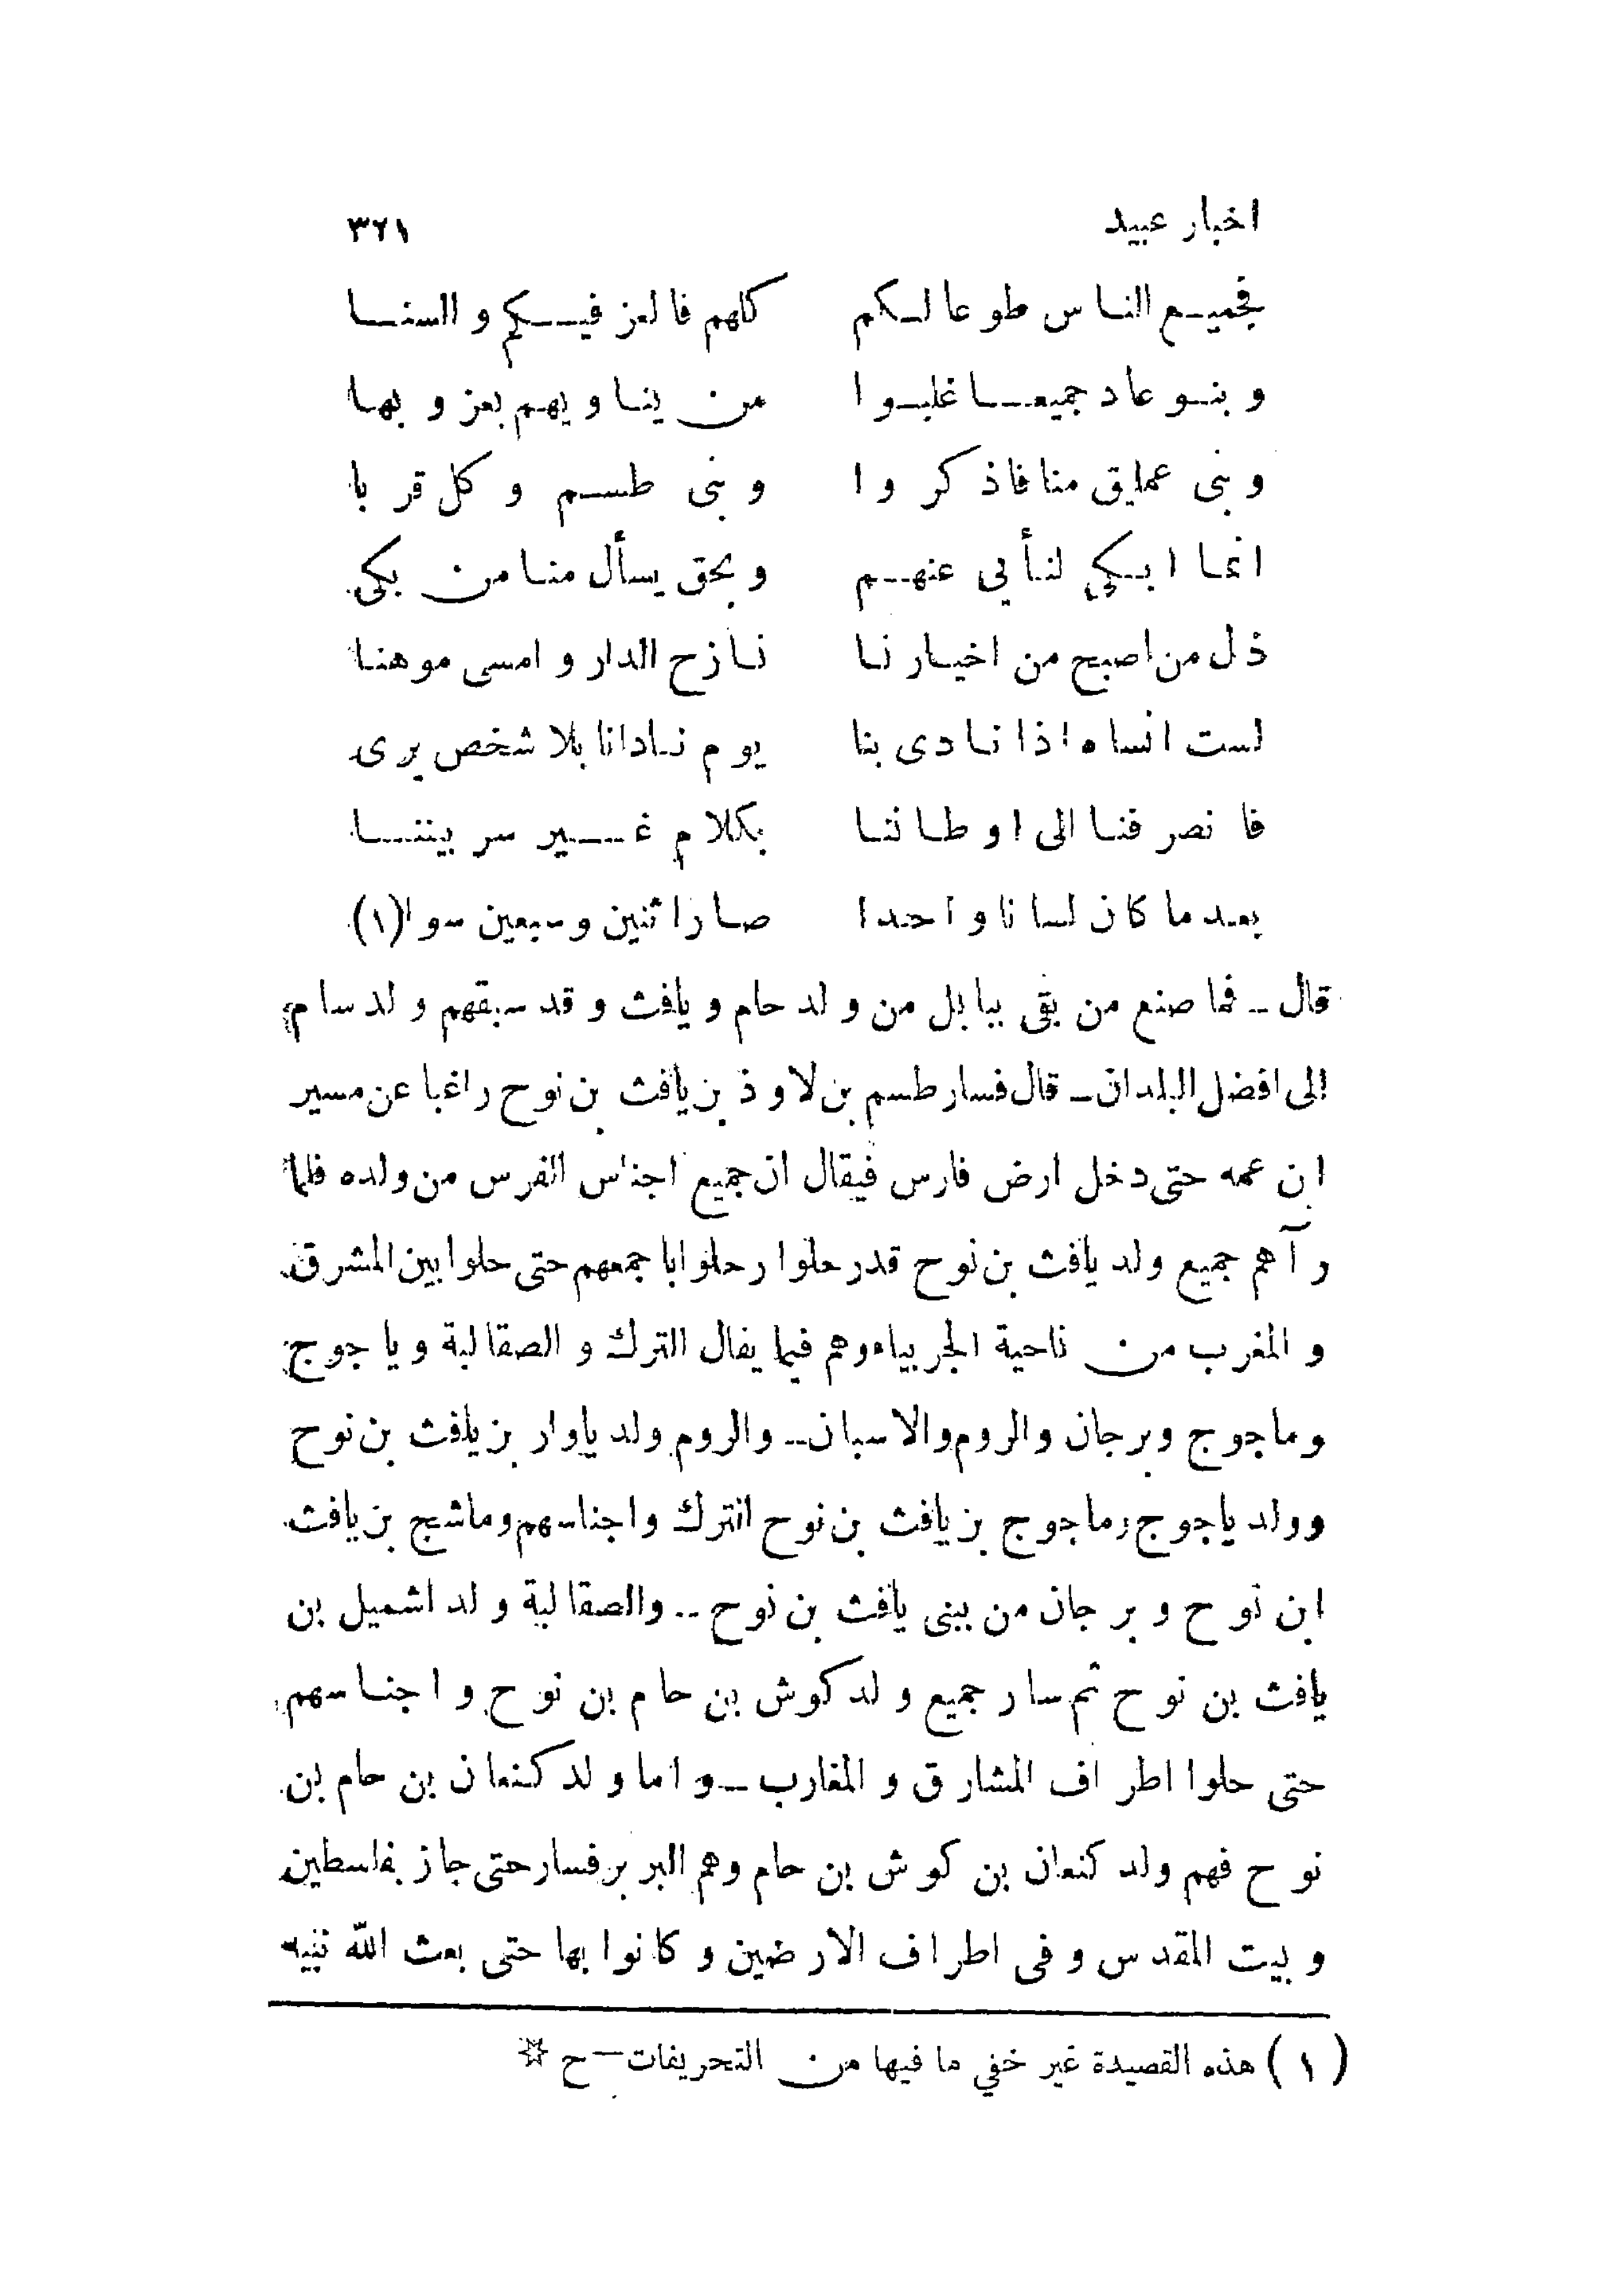 اخبار عبيد ٣٢١
فجميع الناس طوعا لكم كلهم فالعز فيكم والسنا
وبنو عاد جميعا غلبوا من يناويهم بعز وبها
وبنى عمليق منا فاذكروا وبنى طسم وكل قربا
انما ابكي لنأبي عنهم وبحق يسأل منا من بكى
ذل من اصبح من اخيارنا نازح الدار وامسى موهنا
لست انساه اذا نادى بنا يوم نادانا بلا شخص يرى
فانصرفنا الى اوطاننا بكلام غير سر بيننا
بعد ما كان لسانا واحدا صار اثنين وسبعين سوا (١)
قال ـ فما صنع من بقى ببابل من ولد حام ويافث وقد سبقهم ولد سام
الى افضل البلدان ـ قال فسار طسم بن لاوذ بن يافث بن نوح راغبا عن مسير
ابن عمه حتى دخل ارض فارس فيقال ان جميع اجناس الفرس من ولده فلما
رآهم جميع ولد يافث بن نوح قد رحلوا رحلوا باجمعهم حتى حلوا بين المشرق
والمغرب من ناحية الجربياء وهم فيما يقال الترك والصقالبة وياجوج
وماجوج وبرجان والروم والاسبان ـ والروم ولد ياوار بن يافث بن نوح
وولد ياجوج وماجوج بن يافث بن نوح الترك واجناسهم وماشج بن يافث
ابن نوح وبرجان من بينى يافث بن نوح ـ والصقالبة ولد اشميل بن
يافث بن نوح ثم سار جميع ولد كوش بن حام بن نوح واجناسهم
حتى حلوا اطراف المشارق والمغارب ـ واما ولد كنعان بن حام بن
نوح فهم ولد كنعان بن كوش بن حام وهم البربر فسار حتى جاز بفلسطين
وبيت المقدس وفى اطراف الارضين وكانوا بها حتى بعث الله نبيه
(١) هذه القصيدة غير خفي ما فيها من التحريفات — ح ☆